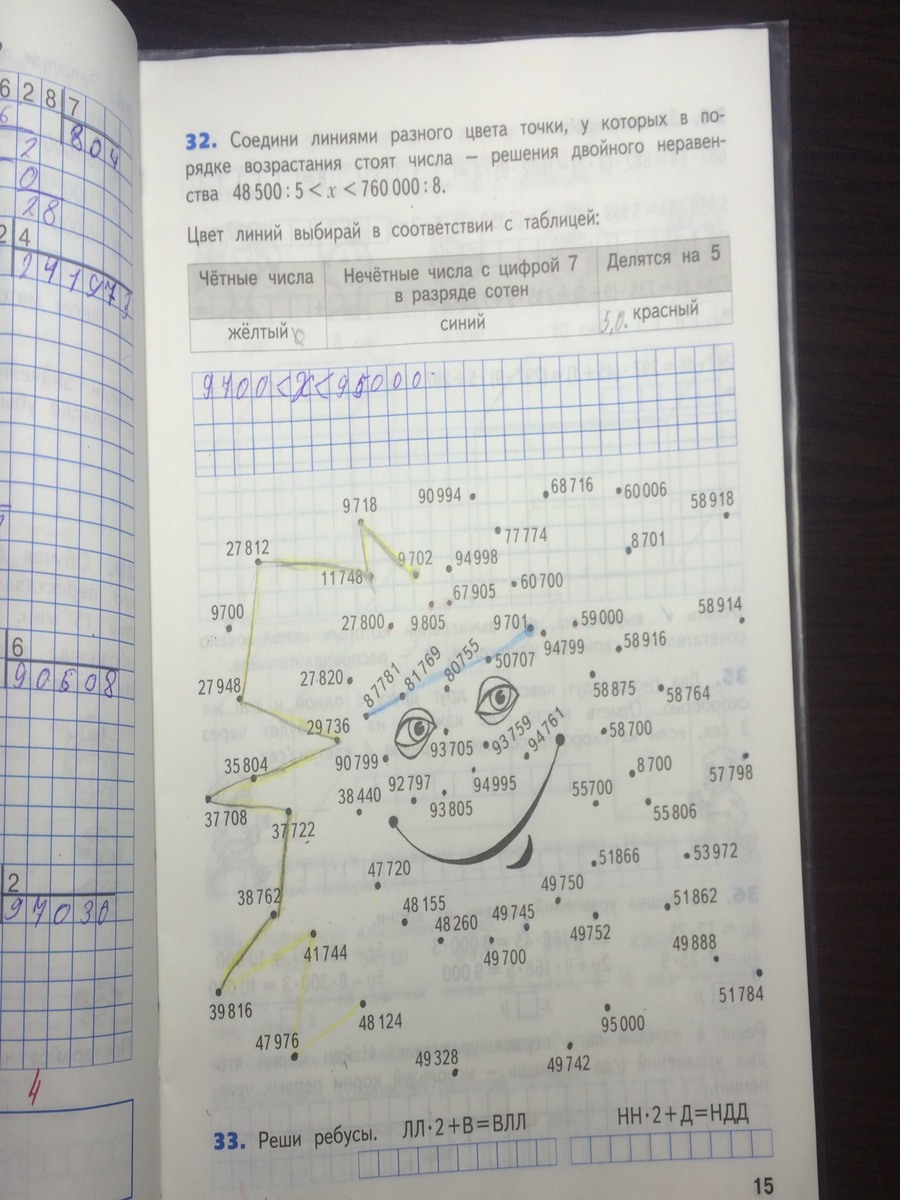 6 2 8 7
8 0 4
2
0
2 8
2 4
2 4 1 9 7
6
9 0 5 0 8
2
9 7 0 3 0
4
32. Соедини линиями разного цвета точки, у которых в по-
рядке возрастания стоят числа — решения двойного неравен-
ства 48 500 : 5 < x < 760 000 : 8.
Цвет линий выбирай в соответствии с таблицей:
Чётные числа Нечётные числа с цифрой 7 Делятся на 5
в разряде сотен
жёлтый синий 5,0. красный
9700<X<95000.
90 994 68 716 60 006
9 718 58 918
77 774
27 812 8 701
9 702 94 998
11 748 60 700
67 905
9 700 58 914
27 800 9 805 9 701 59 000
94 799 58 916
50 707
27 820 87 781 81 769 80 755
27 948 58 875 58 764
29 736 93 705 93 759 94 761 58 700
90 799
35 804 92 797 94 995 8 700 57 798
38 440 55 700
37 708 93 805 55 806
37 722
51 866 53 972
47 720
49 750
38 762 48 155 49 745 51 862
48 260 49 752
41 744 49 700 49 888
39 816 51 784
48 124 95 000
47 976
49 328 49 742
33. Реши ребусы. ЛЛ·2+В=ВЛЛ НН·2+Д=НДД
15